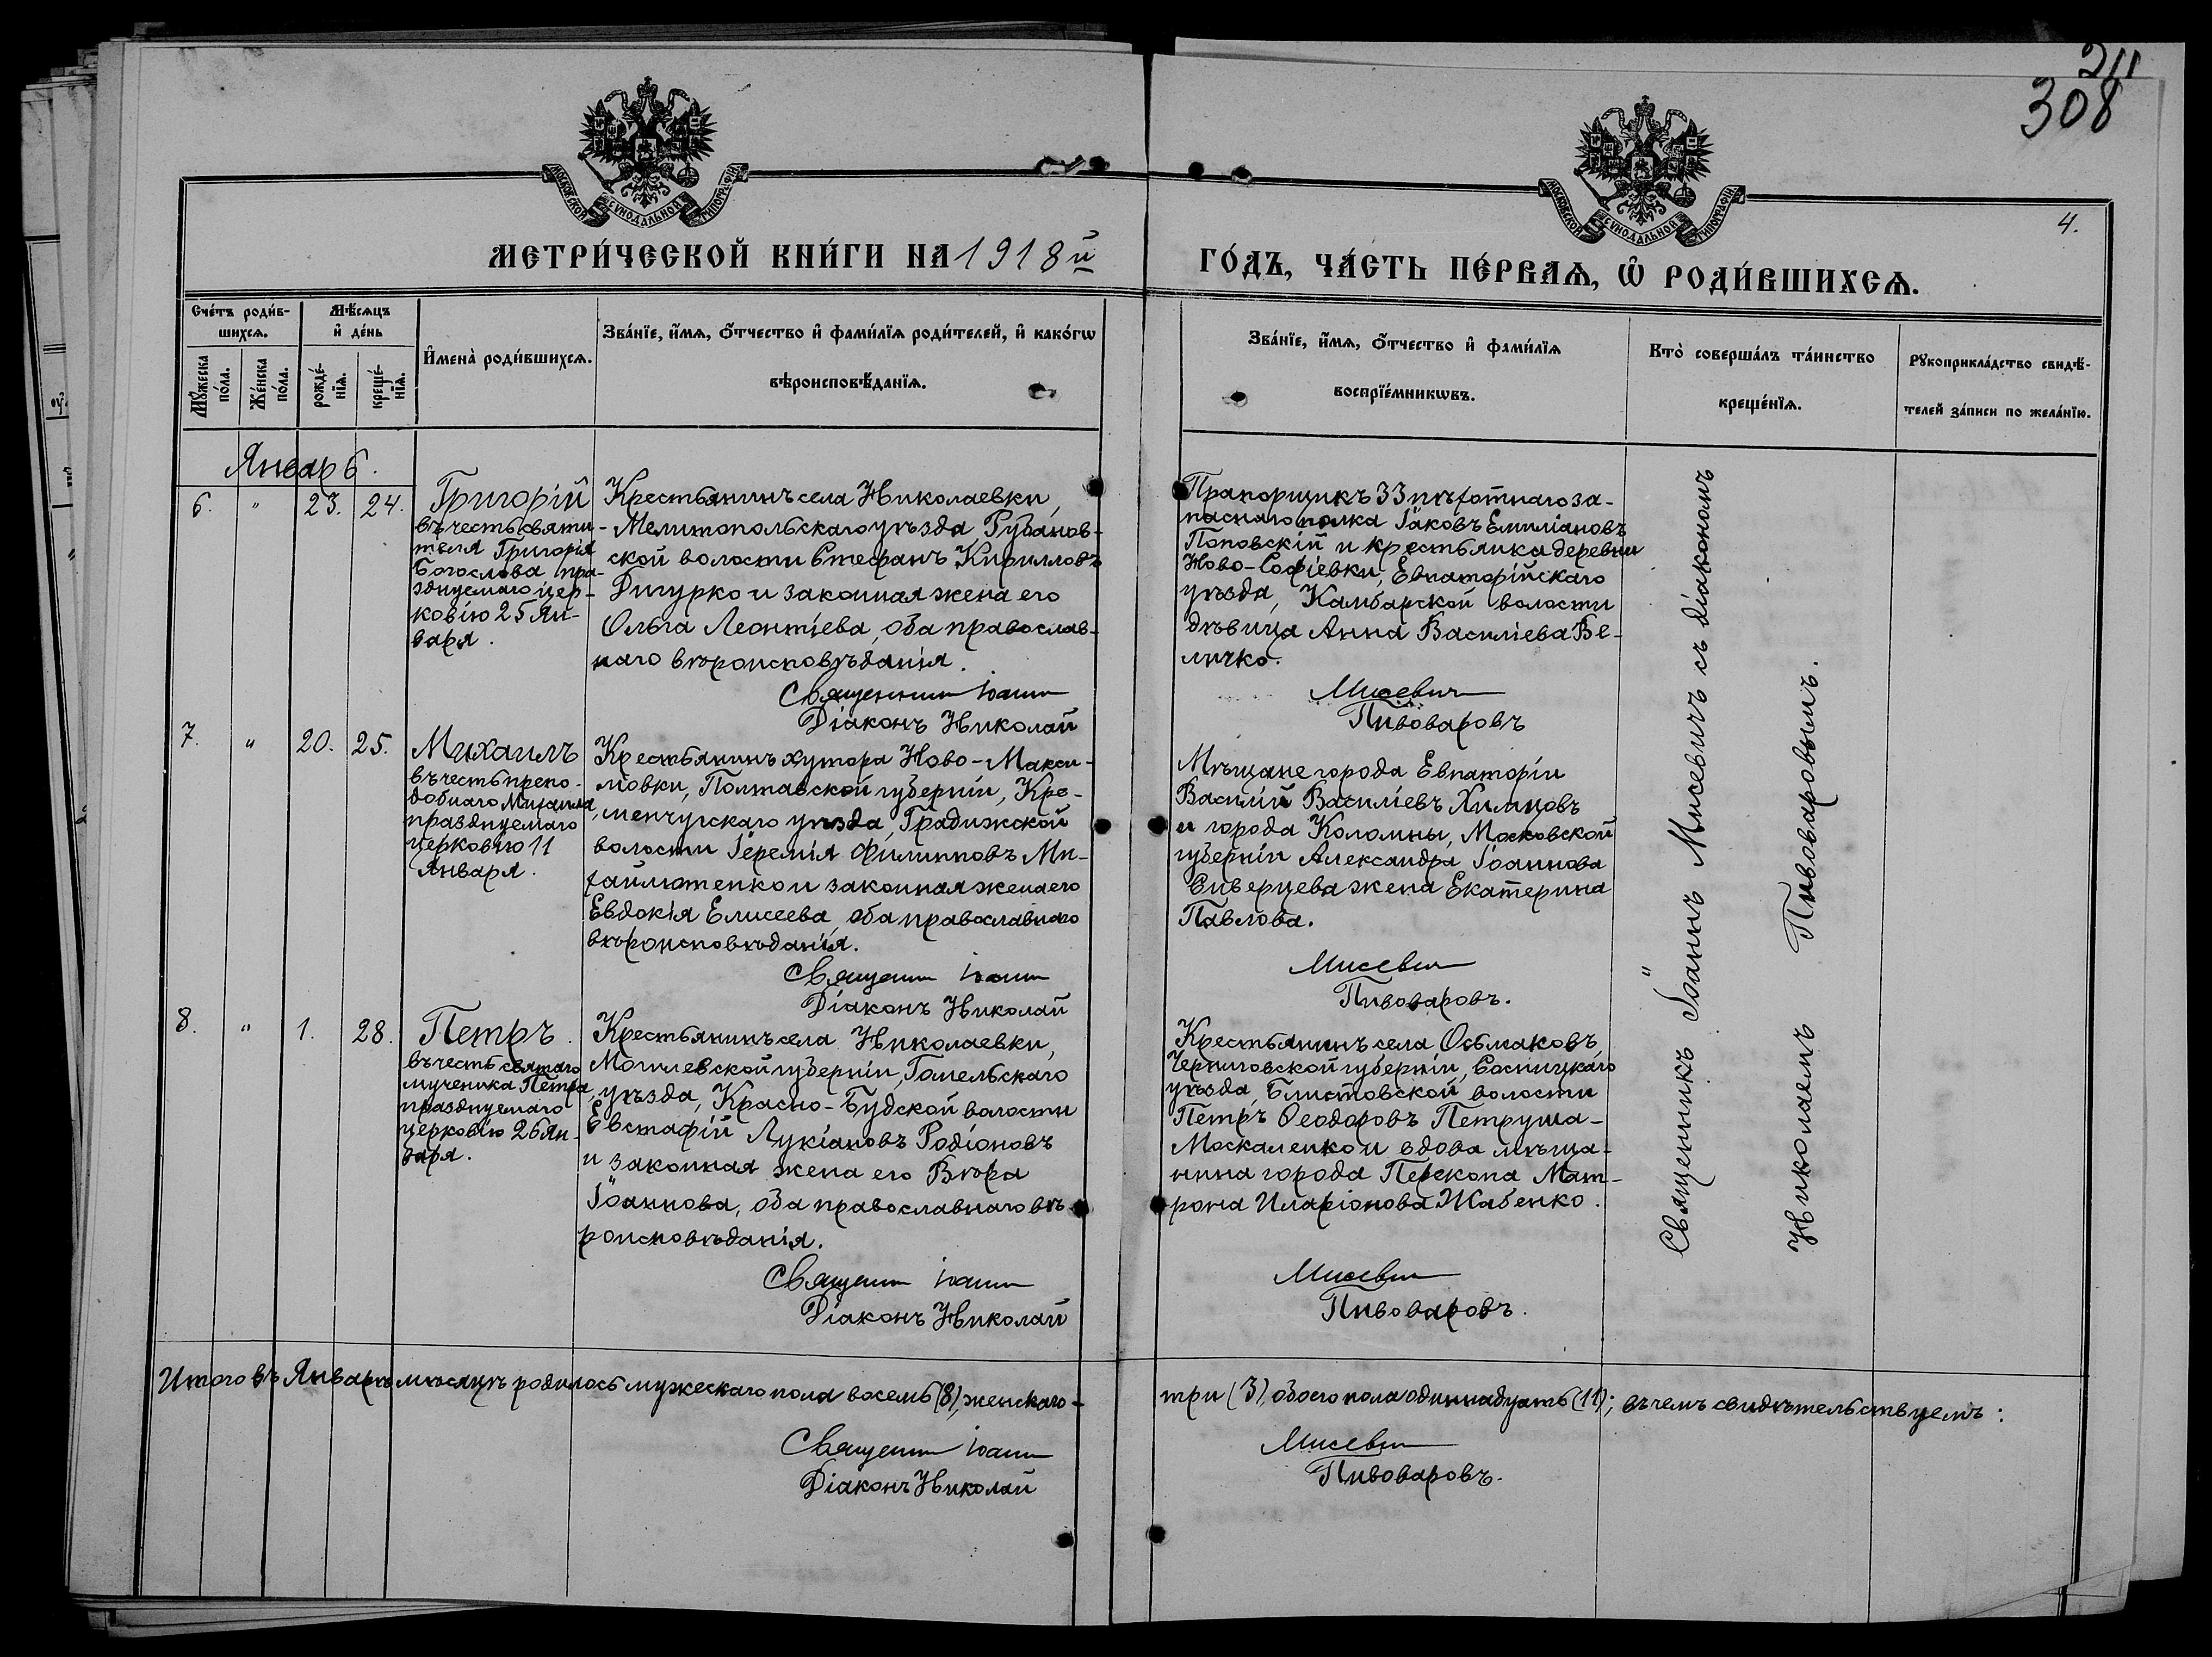 211
308
4.
МОСКОВСКОЙ СѴНОДАЛЬНОЙ ТИПОГРАФІИ
МОСКОВСКОЙ СѴНОДАЛЬНОЙ ТИПОГРАФІИ
МЕТРИ́ЧЕСКОЙ КНИ́ГИ НА 1918й
ГО́ДЪ, ЧА́СТЬ ПЕ́РВАѦ, Ѡ҆ РОДИ́ВШИХСѦ.
Сче́тъ роди́в-
шихсѧ.
Мѣ́сѧцъ
и҆ де́нь
Мꙋ́жеска
по́ла.
Же́нска
по́ла.
рожде́-
нїѧ.
креще́-
нїѧ.
И҆мена̀ роди́вшихсѧ.
Зва́нїе, и҆́мѧ, ѻ҆́тчество и҆ фами́лїѧ роди́телей, и҆ како́гѡ
вѣроисповѣ́данїѧ.
Зва́нїе, и҆́мѧ, ѻ҆́тчество и҆ фами́лїѧ
воспрїе́мникѡвъ.
Кто̀ соверша́лъ та́инство
креще́нїѧ.
Рꙋкоприкла́дство свидѣ́-
телей за́писи по жела́нїю.
Январь.
6. " 23. 24.
Григорій
въ честь святи-
теля Григорія
Богослова, пра-
зднуемаго цер-
ковію 25 Ян-
варя.
Крестьянинъ села Николаевки,
Мелитопольскаго уѣзда, Рубанов-
ской волости Стефанъ Кирилловъ
Гигурко и законная жена его
Ольга Леонтіева, оба православ-
наго вѣроисповѣданія.
Священникъ Іоаннъ
Діаконъ Николай
Прапорщикъ 33 пѣхотнаго за-
паснаго полка Іаковъ Емиліановъ
Поповскій и крестьянка деревни
Ново-Софіевки, Евпаторійскаго
уѣзда, Камбарской волости
дѣвица Анна Василіева Ве-
личко.
Мисевичъ
Пивоваровъ
7. " 20. 25.
Михаилъ
въ честь препо-
добнаго Михаила,
празднуемаго
церковію 11
Января.
Крестьянинъ хутора Ново-Макси-
мовки, Полтавской губерніи, Кре-
менчугскаго уѣзда, Градижской
волости Іеремія Филипповъ Ми-
хайлютенко и законная жена его
Евдокія Елисеева, оба православнаго
вѣроисповѣданія.
Священникъ Іоаннъ
Діаконъ Николай
Мѣщане города Евпаторіи
Василій Василіевъ Химцовъ
и города Коломны, Московской
губерніи Александра Іоаннова
Сиверцева жена Екатерина
Павлова.
Мисевичъ
Пивоваровъ.
8. " 1. 28.
Петръ.
въ честь святаго
мученика Петра,
празднуемаго
церковію 26 Ян-
варя.
Крестьянинъ села Николаевки,
Могилевской губерніи, Гомельскаго
уѣзда, Красно-Будской волости
Евстафій Лукіановъ Родіоновъ
и законная жена его Вѣра
Іоаннова, оба православнаго вѣ-
роисповѣданія.
Священникъ Іоаннъ
Діаконъ Николай
Крестьянинъ села Осьмаковъ,
Черниговской губерніи, Сосницкаго
уѣзда, Блистовской волости
Петръ Ѳеодоровъ Петруша-
Москаленко и вдова мѣща-
нина города Перекопа Мат-
рона Иларіонова Жабенко.
Мисевичъ
Пивоваровъ.
Священникъ Іоаннъ Мисевичъ съ діакономъ
Николаемъ Пивоваровымъ.
Итого въ Январѣ мѣсяцѣ родилось мужескаго пола восемь (8), женскаго-
три (3), обоего пола одиннадцать (11); въ чемъ свидѣтельствуемъ:
Священникъ Іоаннъ
Діаконъ Николай
Мисевичъ
Пивоваровъ.